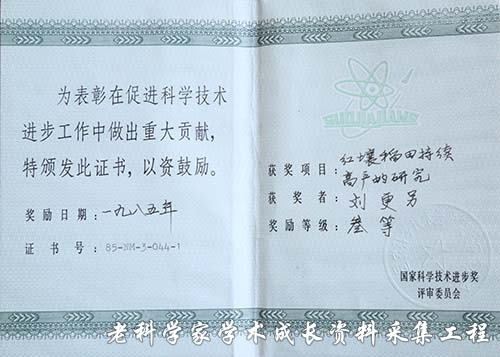 为表彰在促进科学技术
进步工作中做出重大贡献,
特颁发此证书,以资鼓励。
奖励日期:一九八五年
证书号:85-NM-3-044-1
获奖项目:红壤稻田持续
高产的研究
获奖者:刘更另
奖励等级:叁等
国家科学技术进步奖
评审委员会
老科学家学术成长资料采集工程